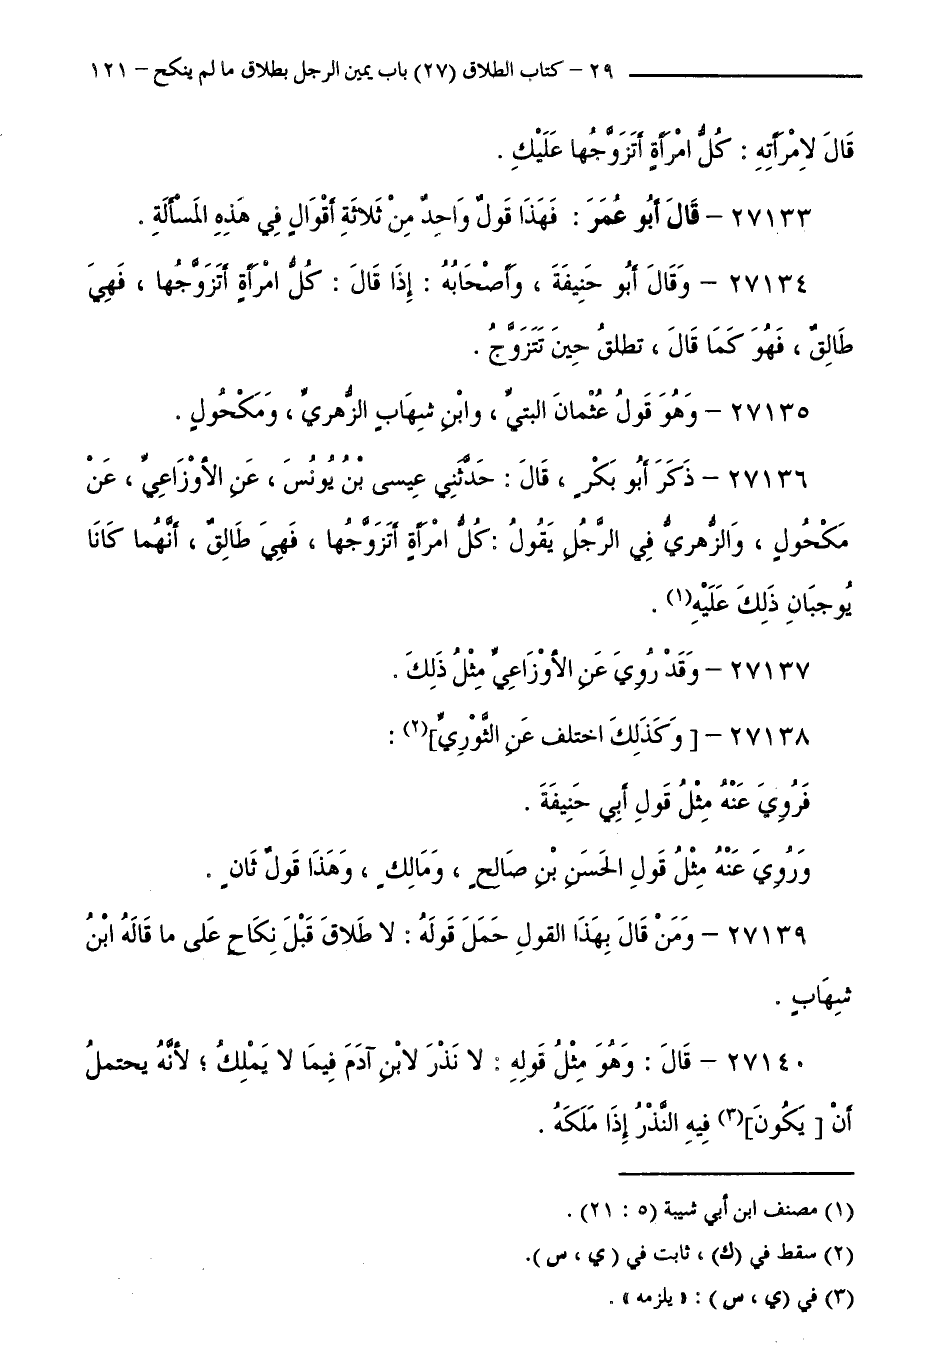 ٢٩ – كتاب الطلاق (٢٧) باب يمين الرجل بطلاق ما لم ينكح – ١٢١
قَالَ لامْرَأَتِهِ : كُلُّ امْرَأَةٍ أَتَزَوَّجُها عَلَيْكِ .
٢٧١٣٣ – قَالَ أَبُو عُمَرَ : فَهَذَا قَولٌ وَاحِدٌ مِنْ ثَلاثَةِ أَقْوَالٍ فِي هَذِهِ المَسْأَلَةِ .
٢٧١٣٤ – وَقَالَ أَبُو حَنِيفَةَ ، وَأَصْحَابُهُ : إِذَا قَالَ : كُلُّ امْرَأَةٍ أَتَزَوَّجُها ، فَهِيَ
طَالِقٌ ، فَهُوَ كَمَا قَالَ ، تطلقُ حِينَ تَتَزَوَّجُ .
٢٧١٣٥ – وَهُوَ قَولُ عُثْمانَ البتيِّ ، وابْنِ شِهَابٍ الزُّهريِّ ، وَمَكْحُولٍ .
٢٧١٣٦ – ذَكَرَ أَبُو بَكْرٍ ، قَالَ : حَدَّثَنِي عِيسى بْنُ يُونُسَ ، عَنِ الأوْزَاعِيِّ ، عَنْ
مَكْحُولٍ ، وَالزُّهريُّ فِي الرَّجُلِ يَقُولُ :كُلُّ امْرَأَةٍ أَتَزَوَّجُها ، فَهِيَ طَالِقٌ ، أَنَّهُما كَانَا
يُوجبَانِ ذَلِكَ عَلَيْهِ(١) .
٢٧١٣٧ – وَقَدْ رُوِيَ عَنِ الأوْزَاعِيِّ مِثْلُ ذَلِكَ .
٢٧١٣٨ – [ وَكَذَلِكَ اختلف عَنِ الثَّوْرِيِّ](٢) :
فَرُوِيَ عَنْهُ مِثْلُ قَولِ أَبِي حَنِيفَةَ .
وَرُوِيَ عَنْهُ مِثْلُ قَولِ الحَسَنِ بْنِ صَالِحٍ ، وَمَالِكٍ ، وَهَذَا قَولٌ ثَانٍ .
٢٧١٣٩ – وَمَنْ قَالَ بِهَذَا القولِ حَمَلَ قَولَهُ : لا طَلاقَ قَبْلَ نِكَاحٍ عَلى ما قَالَهُ ابْنُ
شِهَابٍ .
٢٧١٤٠ – قَالَ : وَهُوَ مِثْلُ قَولِهِ : لا نَذْرَ لابْنِ آدَمَ فِيمَا لا يَمْلِكُ ؛ لأنَّهُ يحتملُ
أَنْ [ يَكُونَ](٣) فِيهِ النَّذْرُ إِذَا مَلَكَهُ .
(١) مصنف ابن أبي شيبة (٥ : ٢١) .
(٢) سقط في (ك) ، ثابت في ( ي ، س ).
(٣) في (ي ، س ) : « يلزمه » .